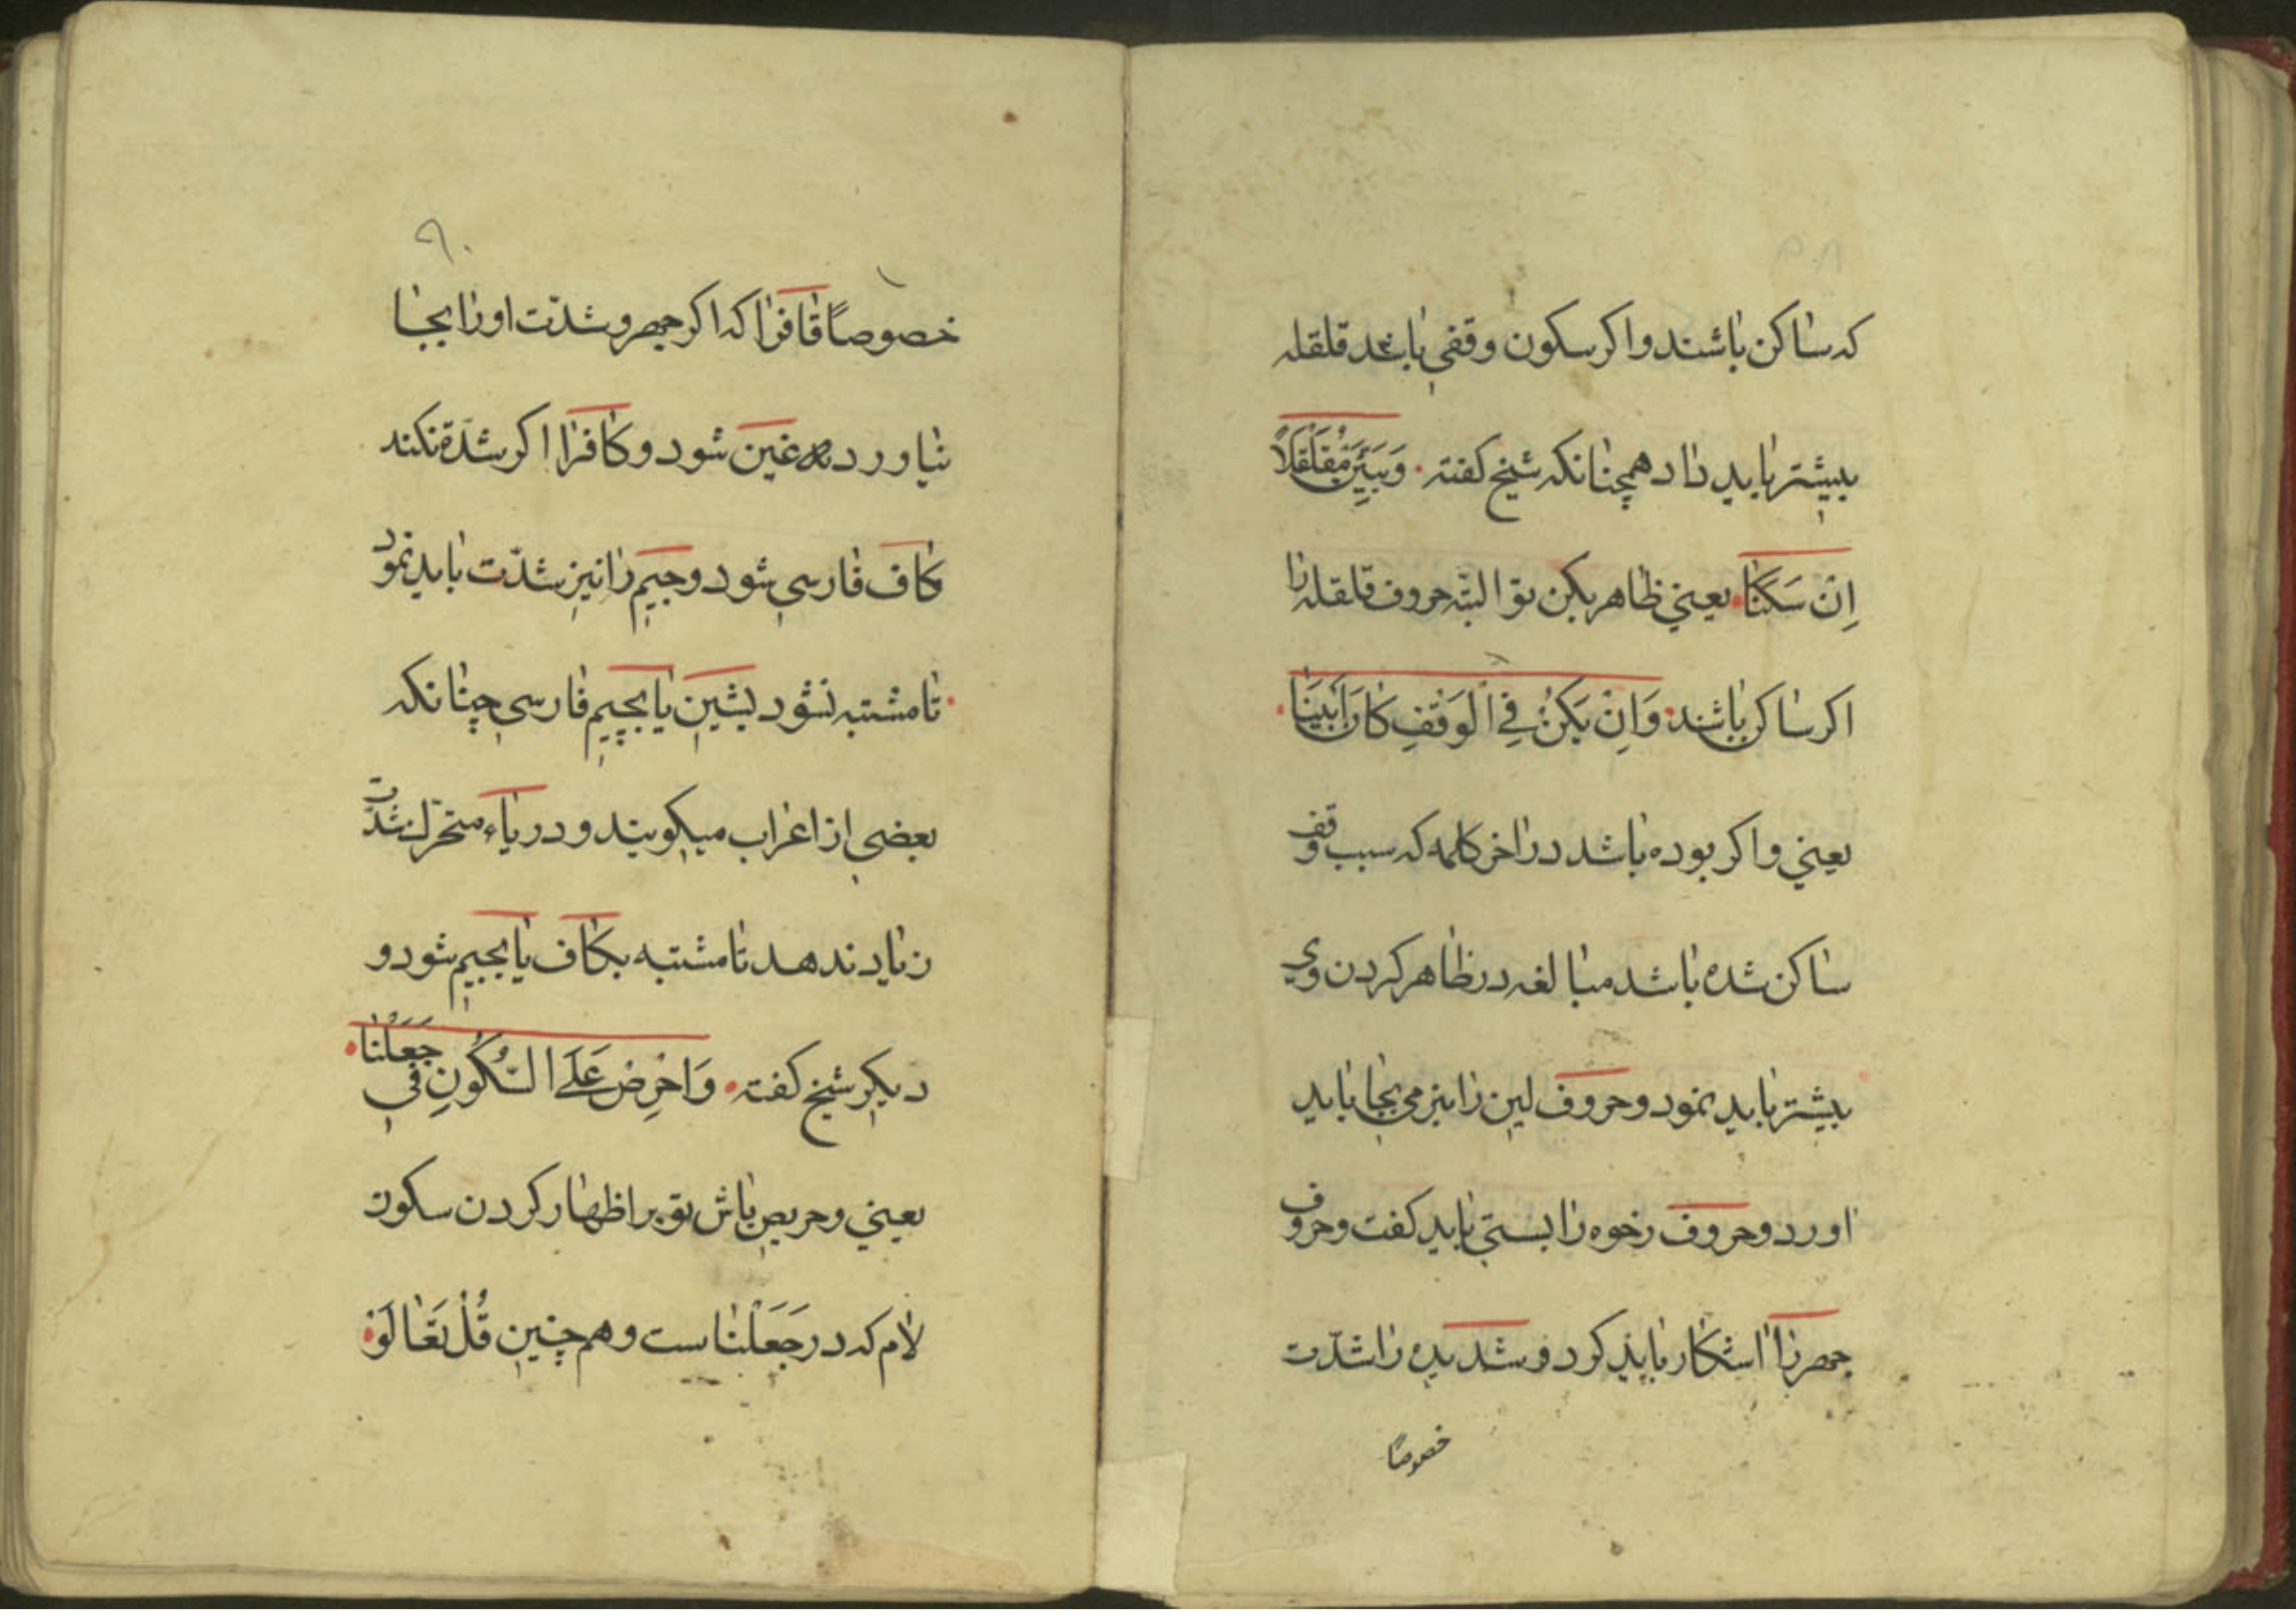 که ساکن باشند واکر سکون وقفی باشد قلقله
بیشتر باید داد همچنانکه شیخ کفته وَبَیِّنْ مُقَلْقَلًا
اِنْ سَکَنَا یعنی ظاهر بکن تو البتّه حروف قلقله را
اکر ساکن باشند وَاِنْ یَکُنْ فِی الْوَقْفِ کَانَ اَبْیَنَا
یعنی واکر بوده باشد در اخر کلمه که سبب وقف
ساکن شده باشد مبالغه در ظاهر کردن وی
بیشتر باید نمود و حروف لین را بنرمی بجا باید
اورد و حروف رخوه را بسستی باید کفت و حروف
جهر را اشکار باید کرد و شدیده را شدّت
خصوصًا
۹۰
خصوصًا قافرا که اکر جهر و شدّت اورا بجا
نیاورد غین شود و کافرا اکر شدّة نکند
کاف فارسی شود و جیم را نیز شدّت باید نمود
تا مشتبه نشود بشین یا بچیم فارسی چنانکه
بعضی از اعراب میکویند و در یاء متحرّک شدّت
زیاد ندهد تا مشتبه بکاف یا بجیم شود و
دیکر شیخ کفته وَاحْرِصْ عَلَی السُّکُونِ فی جَعَلْنَا
یعنی و حریص باش تو بر اظهار کردن سکون
لام که در جَعَلْنَاست و هم چنین قُلْ تَعَالَوْ